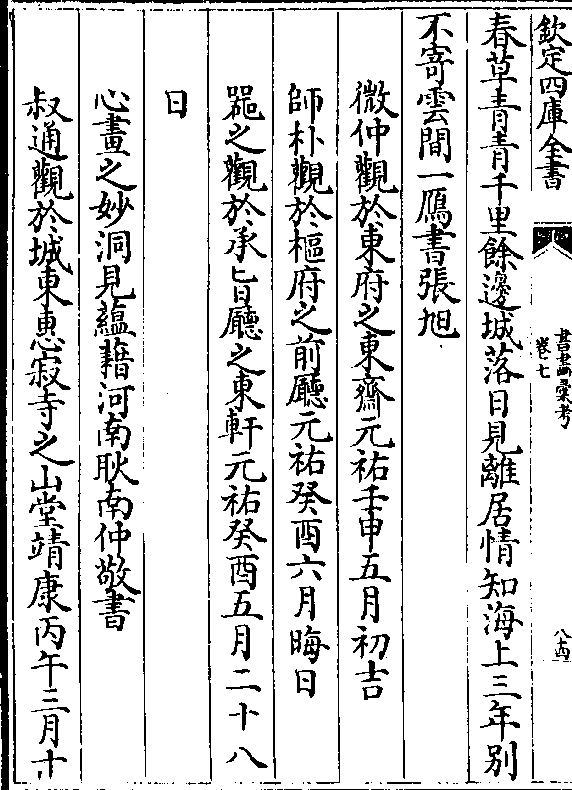 欽定四庫全書
書畫彙考
卷七
春草青青千里餘邊城落日見離居情知海上三年別
不寄雲間一鴈書張旭
微仲觀於東府之東齋元祐壬申五月初吉
師朴觀於樞府之前廳元祐癸酉六月晦日
器之觀於承旨廳之東軒元祐癸酉五月二十八
日
心畫之妙洞見蘊藉河南耿南仲敬書
叔通觀於城東惠寂寺之山堂靖康丙午三月十